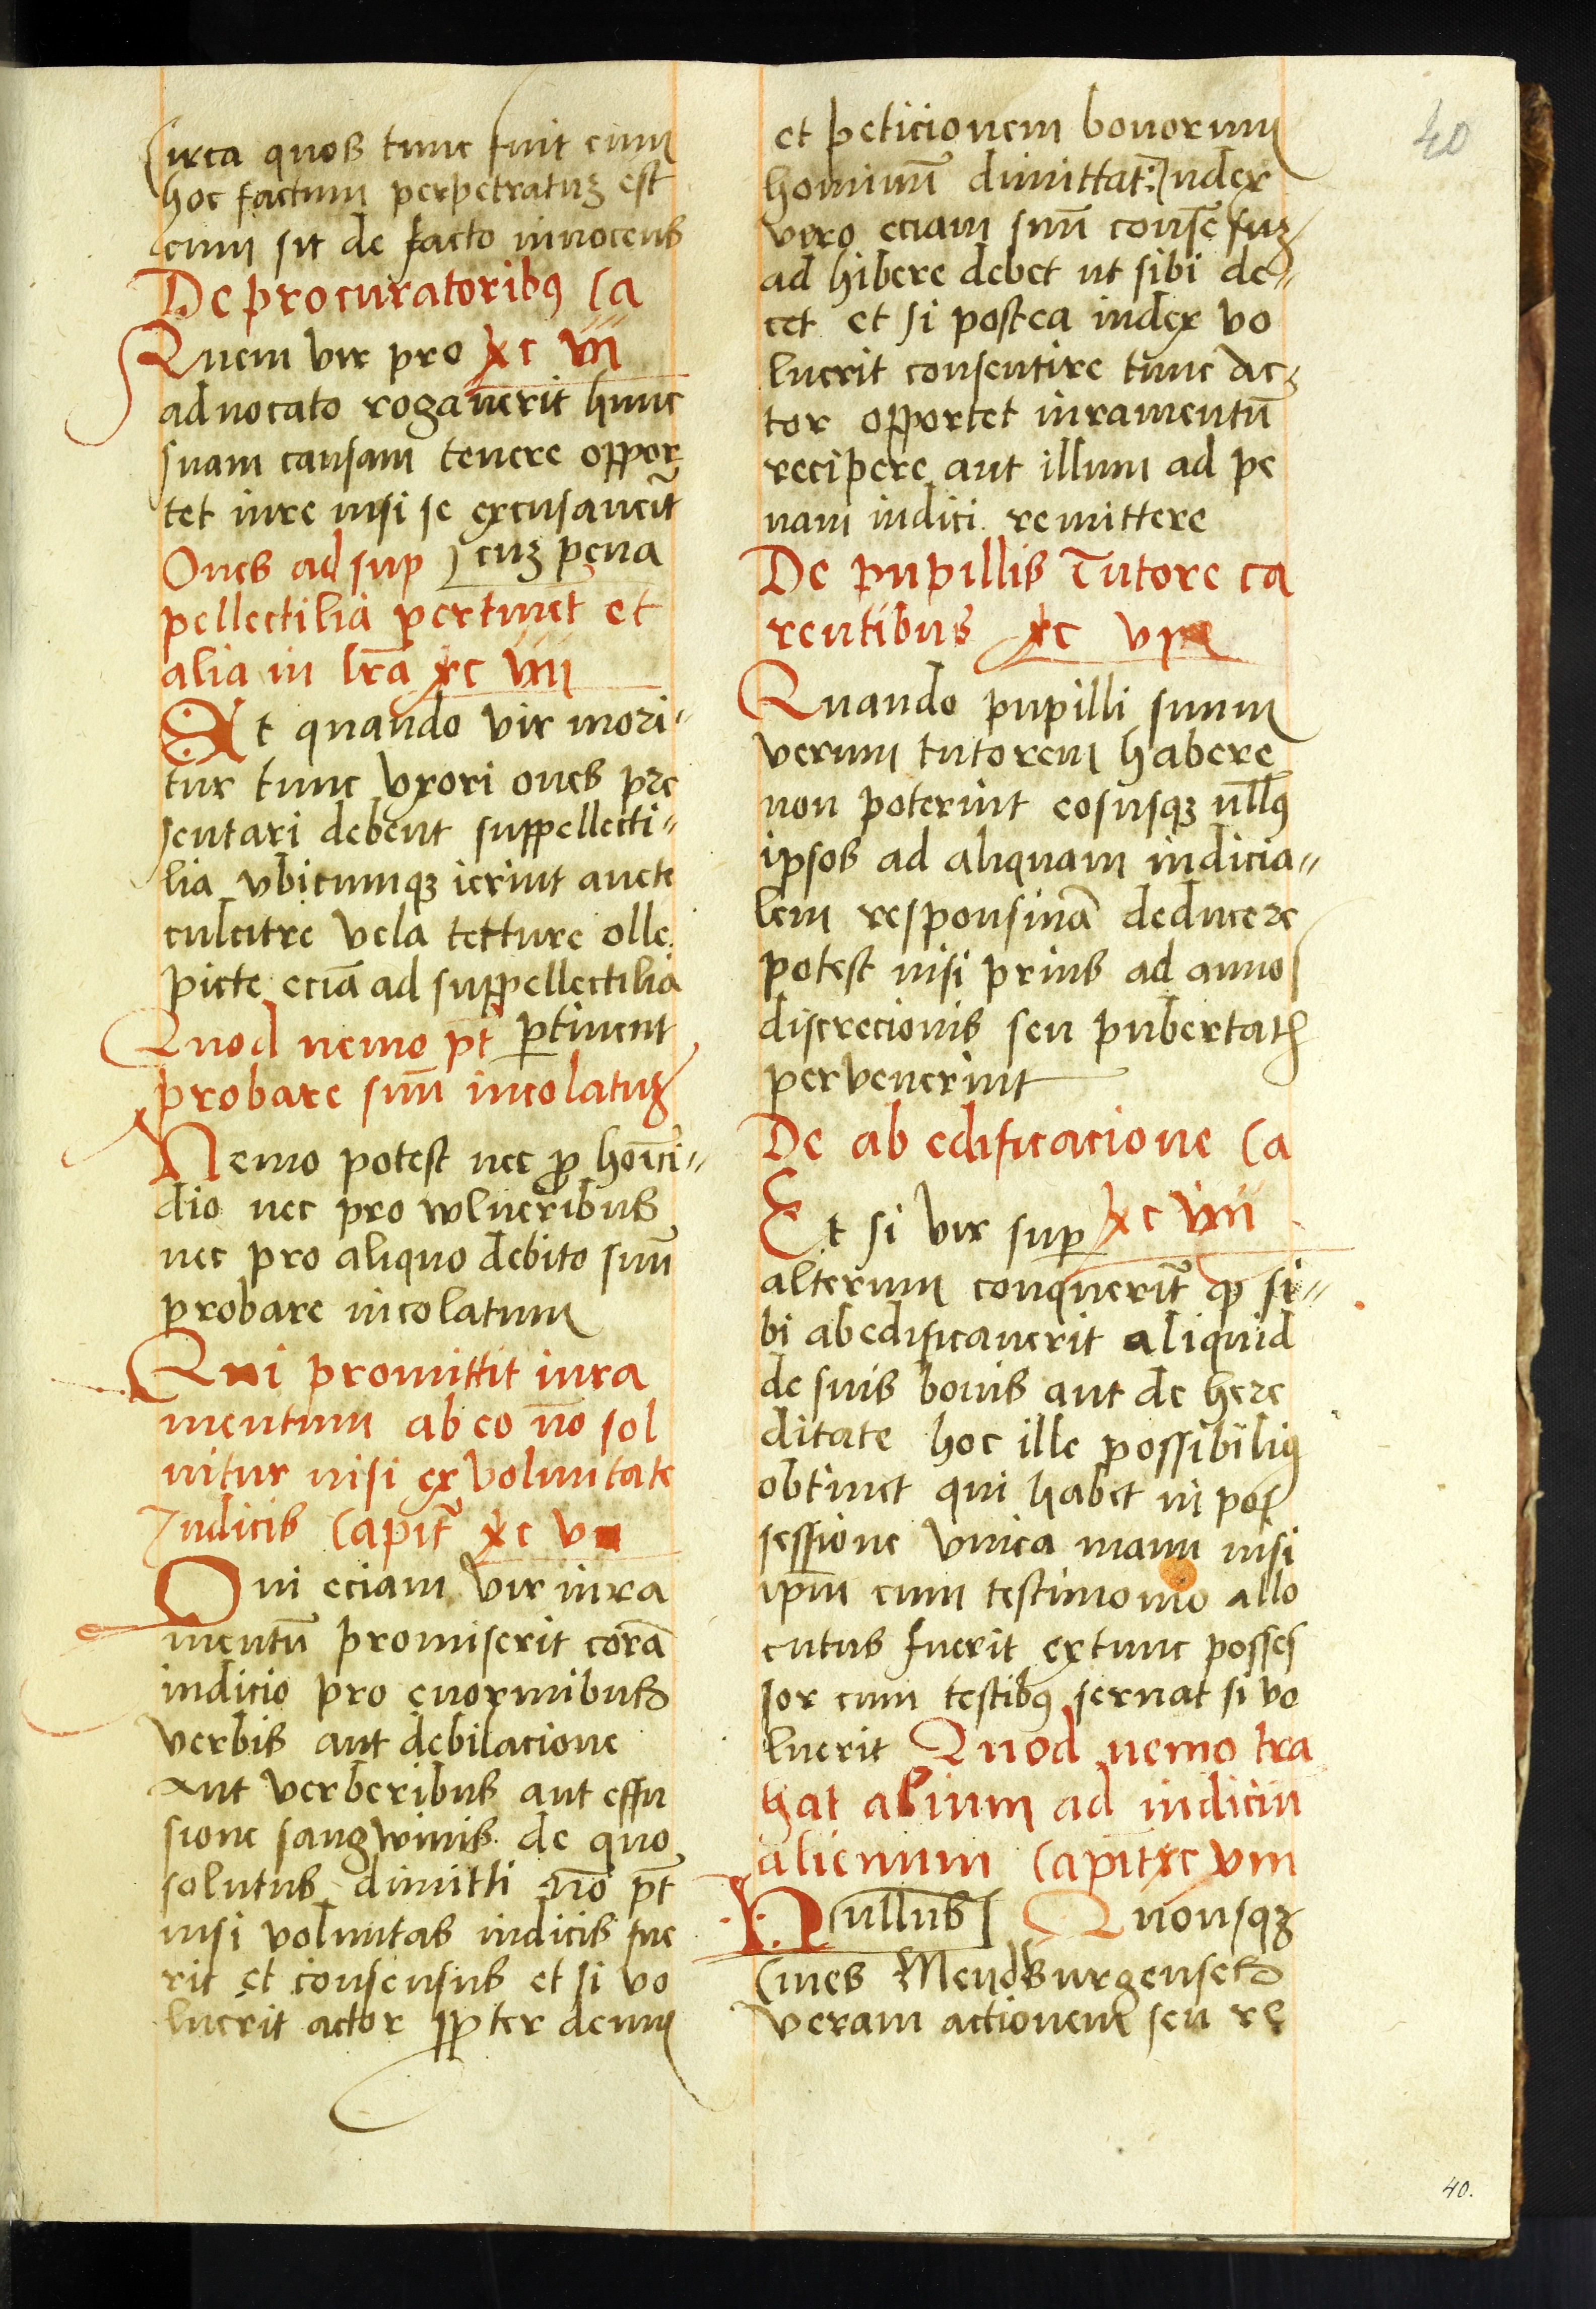 40
Circa quos tunc fuit cum
hoc factum perpetratuʒ est
cum sit de facto innocens
De procuratoribꝰ Ca
Quem vir pro xc vii
aduocato rogauerit hunc
suam causam tenere oppor
tet iure nisi se excusauerit̃
Oues ad sup cuʒ pena
pellectilia pertinet et
alia in lr̃a xc viii
Et quando vir mori⸗
tur tunc vxori oues pre
sentari debent suppellecti⸗
lia vbicumqʒ ierint aucte
culcitre vela tetture olle
picte eciã ad suppellectilia
Quod nemo pt̃ ꝑtinent
probare suũ incolatuʒ
Nemo potest nec ꝓ hoĩci⸗
dio nec pro wlneribus
nec pro aliquo debito suũ
probare incolatum
Qui promittit iura
mentum ab eo nõ sol
uitur nisi ex voluntate
Iudicis Capit̃ xc v
Qui eciam vir iura
mentũ promiserit corã
iudicio pro enormibus
verbis aut debilacione
aut verberibus aut effu
sione sangwinis de quo
solutus dimitti nõ pt̃
nisi voluntas iudicis fue
rit et consensus et si vo
luerit actor ꝓpter deum
et peticionem bonorum
hominũ dimittat: Iudex
vero eciam suũ consẽsuʒ
ad hibere debet ut sibi de⸗
cet et si postea iudex vo
luerit consentire tunc ac⸗
tor opportet iuramentũ
recipere aut illum ad pe
nam iudici remittere
De pupillis Tutore ca
rentibus xc vi
Quando pupilli suum
verum tutorem habere
non poterint eousqʒ nullꝰ
ipsos ad aliquam iudicia⸗
lem responsiuã deducere
potest nisi prius ad annos
discrecionis seu pubertatꝭ
pervenerint
De ab edificacione Ca
Et si vir super xc viii
alterum conquerit̃ ꝙ si⸗
bi abedificauerit aliquid
de suis bonis aut de here
ditate hoc ille possibiliꝰ
obtinet qui habet in pos
sessione vnica manu nisi
ipm̃ cum testimonio allo
cutus fuerit extunc posses
sor cum testibꝰ seruat si vo
luerit Quod nemo tra
hat alium ad iudiciũ
alienum Capit xc viii
Nullus Quousqʒ
Ciues Meydburgenses
veram actionem seu re
40.